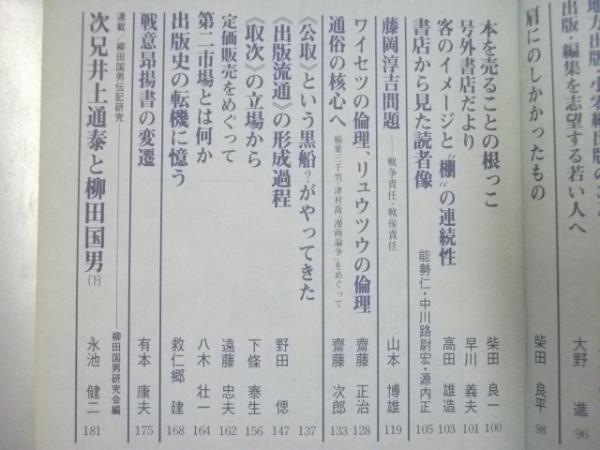 出版・編集を志望する若い人へ 大野 進 96
肩にのしかかったもの 柴田 良平 98
本を売ることの根っこ 柴田 良一 100
号外書店だより 早川 義夫 101
客のイメージと〝棚〟の連続性 高田 雄造 103
書店から見た読者像 能勢仁・中川路尉宏・源内正 105
藤岡淳吉問題――戦争責任・戦後責任 山本 博雄 119
ワイセツの倫理、リュウツウの倫理 齋藤 正治 128
通俗の核心へ 稲葉三千男・津村喬〝漫画論争〟をめぐって 齋藤 次郎 133
《公取》という黒船?がやってきた 137
《出版流通》の形成過程 野田 偲 147
《取次》の立場から 下條 泰生 156
定価販売をめぐって 遠藤 忠夫 162
第二市場とは何か 八木 壮一 164
出版史の転機に憶う 救仁郷 建 168
戦意昂揚書の変遷 有本 康夫 175
連載・柳田国男伝記研究――柳田国男研究会編
次兄井上通泰と柳田国男(下) 永池 健二 181